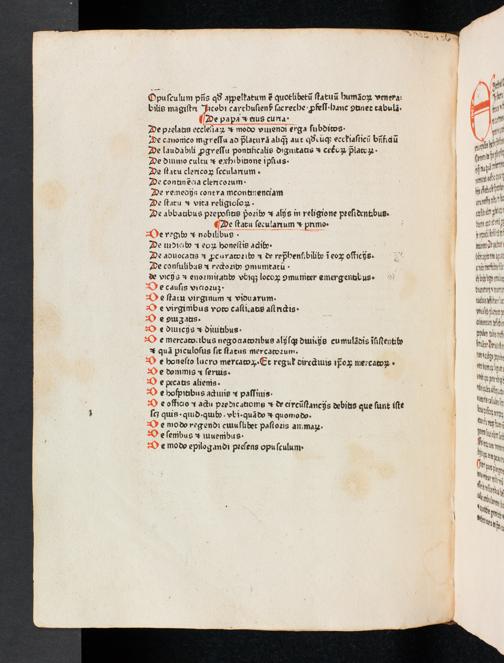 Opusculum pn̄s qd̄ appellatum ē quotlibetū statuū humāoꝝ venera⸗
bilis magistri Jacobi carthusienꝭ sacreche ꝓfess· hanc ꝯtinet tabulā·
De papa ⁊ eius curia·
De prelatis ecclesiaꝝ ⁊ modo viuendi erga subditos·
De canonico ingressu ad p̄laturā
De laudabili ꝓgressu pontificalis dignitatis ⁊ p̄latoꝝ·
De diuino cultu ⁊ exhibitione ipsius·
De statu clericoꝝ secularium·
De continēcia clericorum·
De remedijs contra incontinenciam
De statu ⁊ vita religiosoꝝ·
De abbatibus prepositis p̄orib⁹ ⁊ alijs in religione presidentibus·
De statu secularium ⁊ primo·
De regib⁹ ⁊ nobilibus·
De iudicib⁹ ⁊ eoꝝ honestis
De aduocatis ⁊ ꝓcuratorib⁹ ⁊ de rep̄hensibilib⁹ ī eoꝝ officijs·
De consulibus ⁊ rectorib⁹ ꝯmunitatū·
de vicijs ⁊ enormitatib⁹ vbiqꝫ locoꝝ ꝯmuniter emergentibus·
De causis vicioruꝫ·
De statu virginum ⁊ viduarum·
De virginibus voto castitatis astrictis·
De ꝯiugatis·
De diuicijs ⁊ diuitibus·
De mercatoribus negociatoribus alijsqꝫ diuicijs cumulādis īsistentib⁹
⁊ quā periculosus sit status mercatorum·
De honesto lucro mercatoꝝ· Et regul̄ directiuis ip̄oꝝ mercatoꝝ·
De dominis ⁊ seruis·
De peccatis alienis·
De hospitibus actiuis ⁊ passiuis·
De officio ⁊ actu predicationis ⁊ de circūstancijs debitis que sunt iste
scꝫ quis· quid· quib⁹· vbi· quādo ⁊ quomodo·
De modo regendi cuiuslibet pastoris animaꝝ·
De senibus ⁊ iuuenibus·
De modo epilogandi presens opusculum·